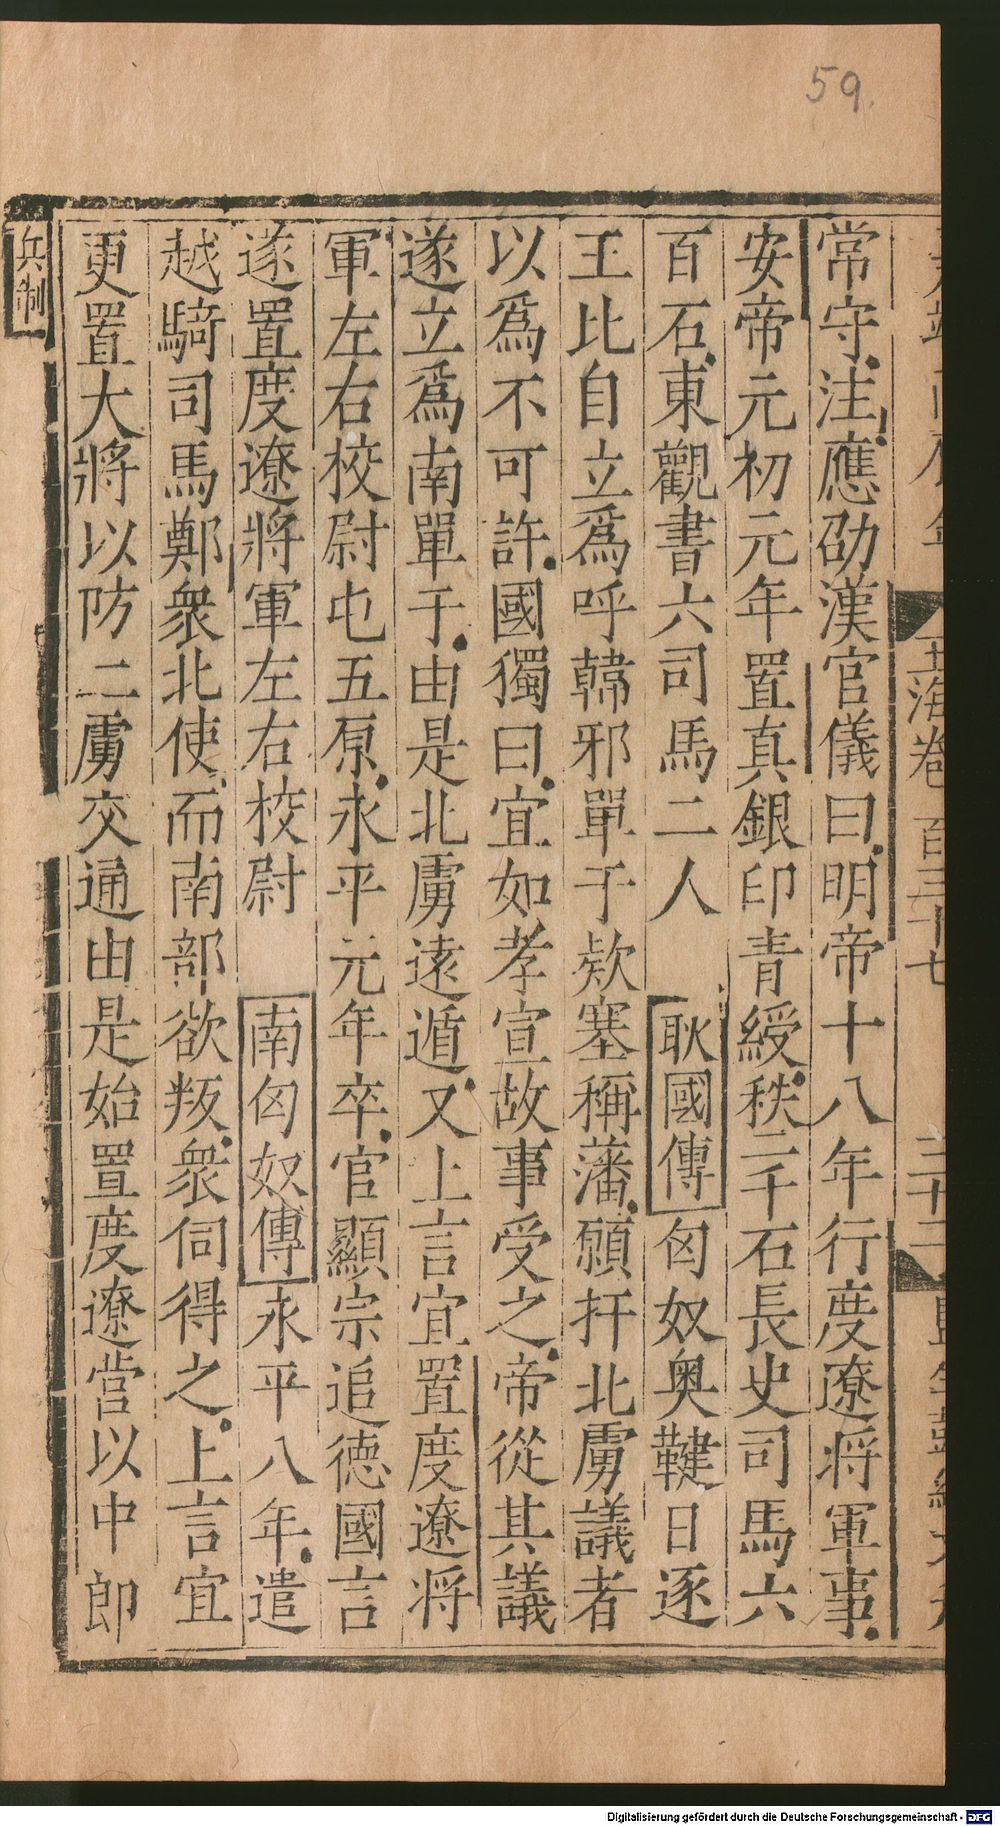 59.
玉海卷一百三十七
三十二
常守注應劭漢官儀曰明帝十八年行度遼將軍事
安帝元初元年置真銀印青綬秩二千石長史司馬六
百石東觀書六司馬二人 耿國傳 匈奴奥鞬日逐
王比自立爲呼韓邪單于欵塞稱藩願扞北虜議者
以爲不可許國獨曰宜如孝宣故事受之帝從其議
遂立爲南單于由是北虜遠遁又上言宜置度遼將
軍左右校尉屯五原永平元年卒官顯宗追德國言
遂置度遼將軍左右校尉 南匈奴傳 永平八年遣
越騎司馬鄭衆北使而南部欲叛衆伺得之上言宜
更置大將以防二虜交通由是始置度遼營以中郎
兵制
Digitalisierung gefördert durch die Deutsche Forschungsgemeinschaft - DFG